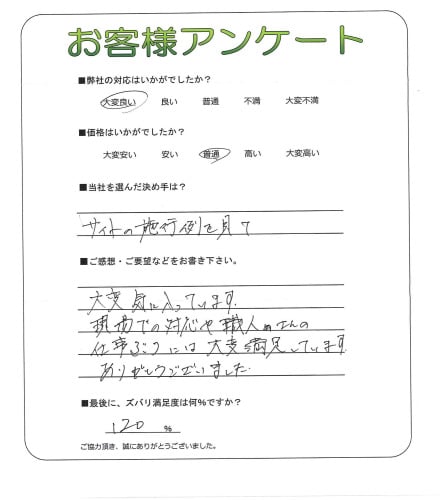 お客様アンケート
■弊社の対応はいかがでしたか？
大変良い 良い 普通 不満 大変不満
■価格はいかがでしたか？
大変安い 安い 普通 高い 大変高い
■当社を選んだ決め手は？
サイトの施行例を見て
■ご感想・ご要望などをお書き下さい。
大変気に入っています。
現場での対応や職人さんの
仕事ぶりには大変満足しています。
ありがとうございました。
■最後に、ズバリ満足度は何%ですか？
120 %
ご協力頂き、誠にありがとうございました。